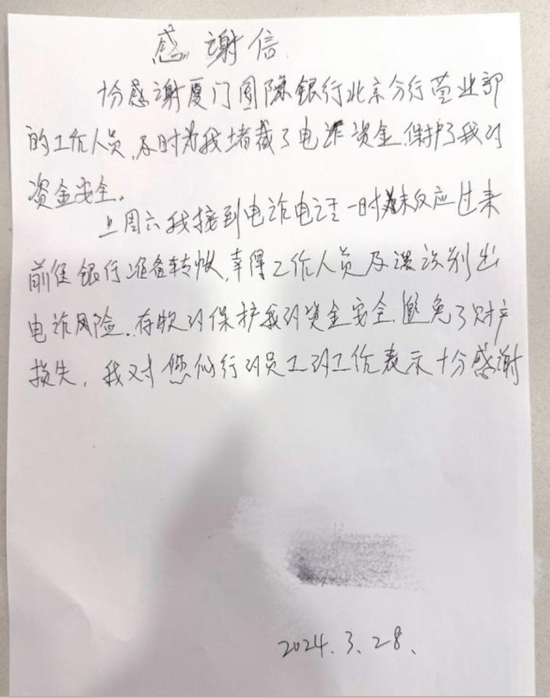 感谢信
十份感谢厦门国际银行北京分行营业部
的工作人员,及时为我堵截了电诈资金.保护了我的
资金安全。
上周六我接到电诈电话一时未反应过来
前往银行准备转帐,幸得工作人员及误识别出
电诈风险.有效的保护我的资金安全.避免了财产
损失,我对您们行的员工的工作表示十分感谢
2024.3.28.